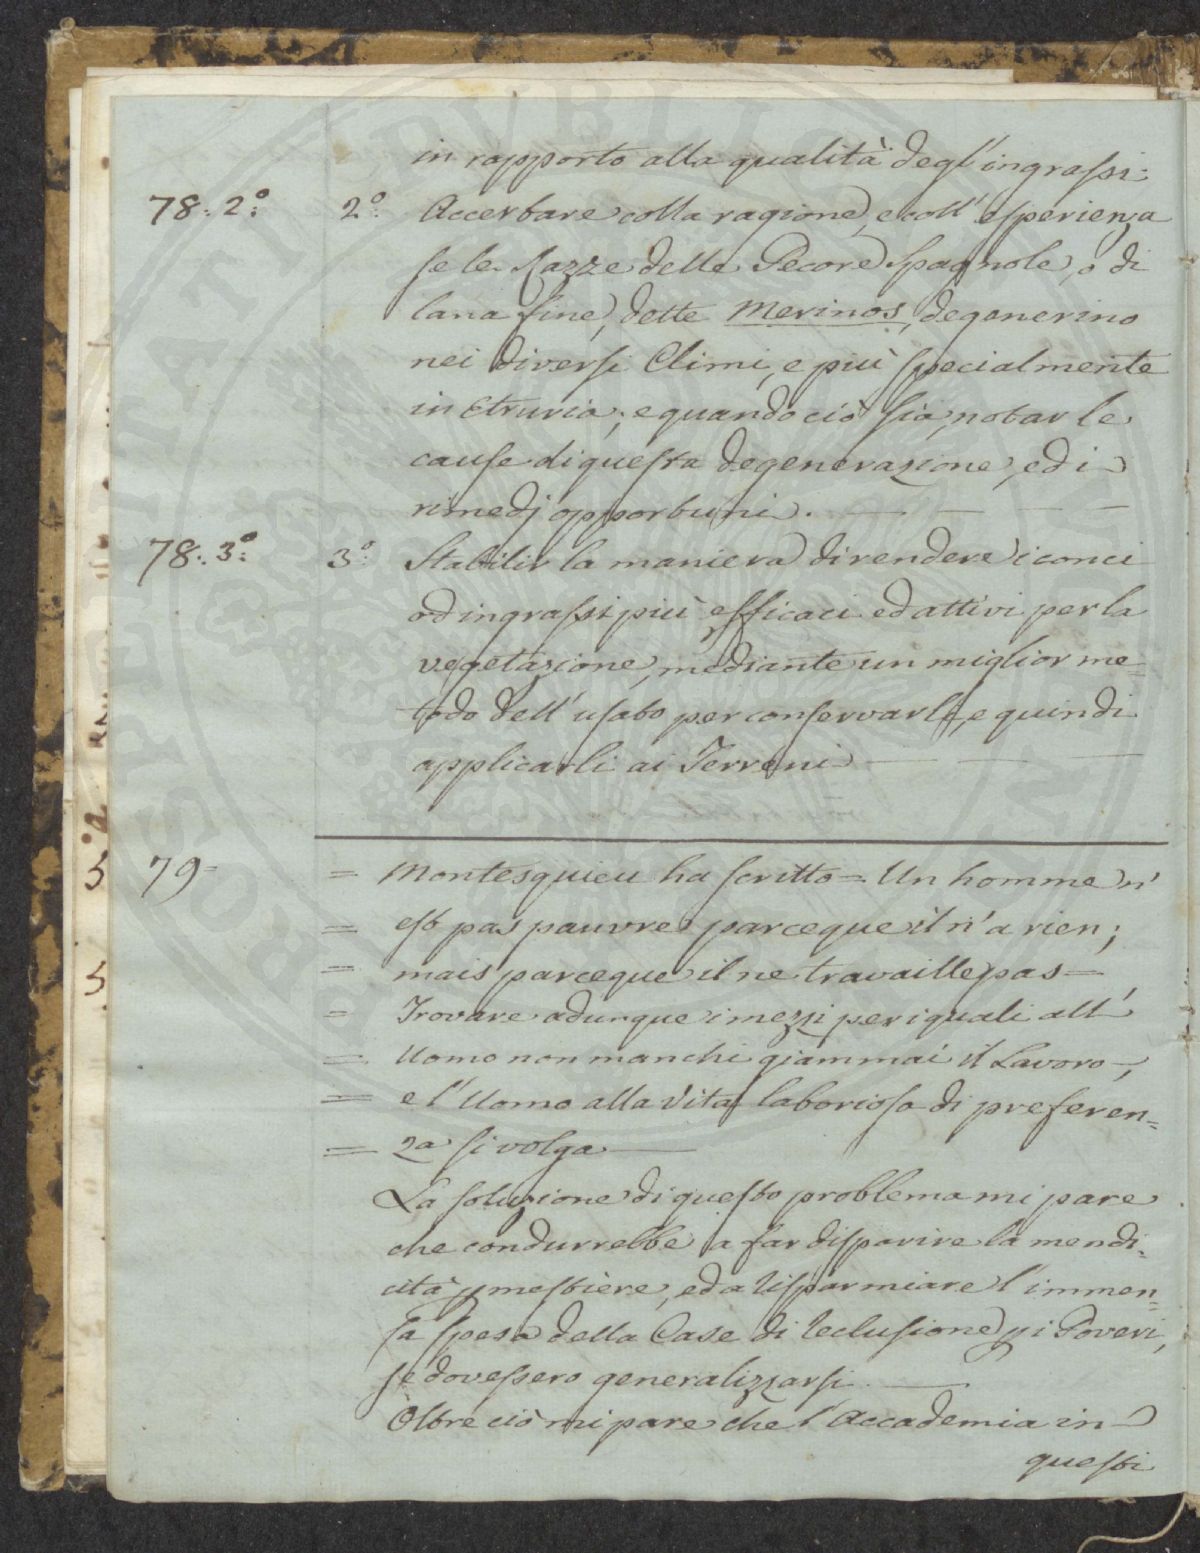 in rapporto alla qualità degl'ingrassi.
78. 2.° 2.° Accertare colla ragione, e coll'esperienza
se le Razze delle Pecore Spagnole, o di
lana fine, dette Merinos, degenerino
nei diversi Climi, e più specialmente
in Etruria; e quando ciò sia, notar le
cause di questa degenerazione, ed i
rimedj opportuni. — — — —
78. 3.° 3.° Stabilir la maniera di rendere i conci
od ingrassi più efficaci ed attivi per la
vegetazione, mediante un miglior me-
todo dell'usato per conservarli, e quindi
applicarli ai Terreni — — —
79- = Montesquieu ha scritto = Un homme n'
= est pas pauvre parceque il n'a rien;
= mais parceque il ne travaille pas =
= Trovare adunque i mezzi per i quali all'
= Uomo non manchi giammai il Lavoro,
= e l'Uomo alla Vita laboriosa di preferen=
= za si volga —
La soluzione di questo problema mi pare
che condurrebbe a far disparire la mendi=
cità p mestiere, ed a risparmiare l'immen=
sa spesa della Case di reclusione p i Poveri,
se dovessero generalizzarsi. —
Oltre ciò mi pare che l'Accademia in
questi